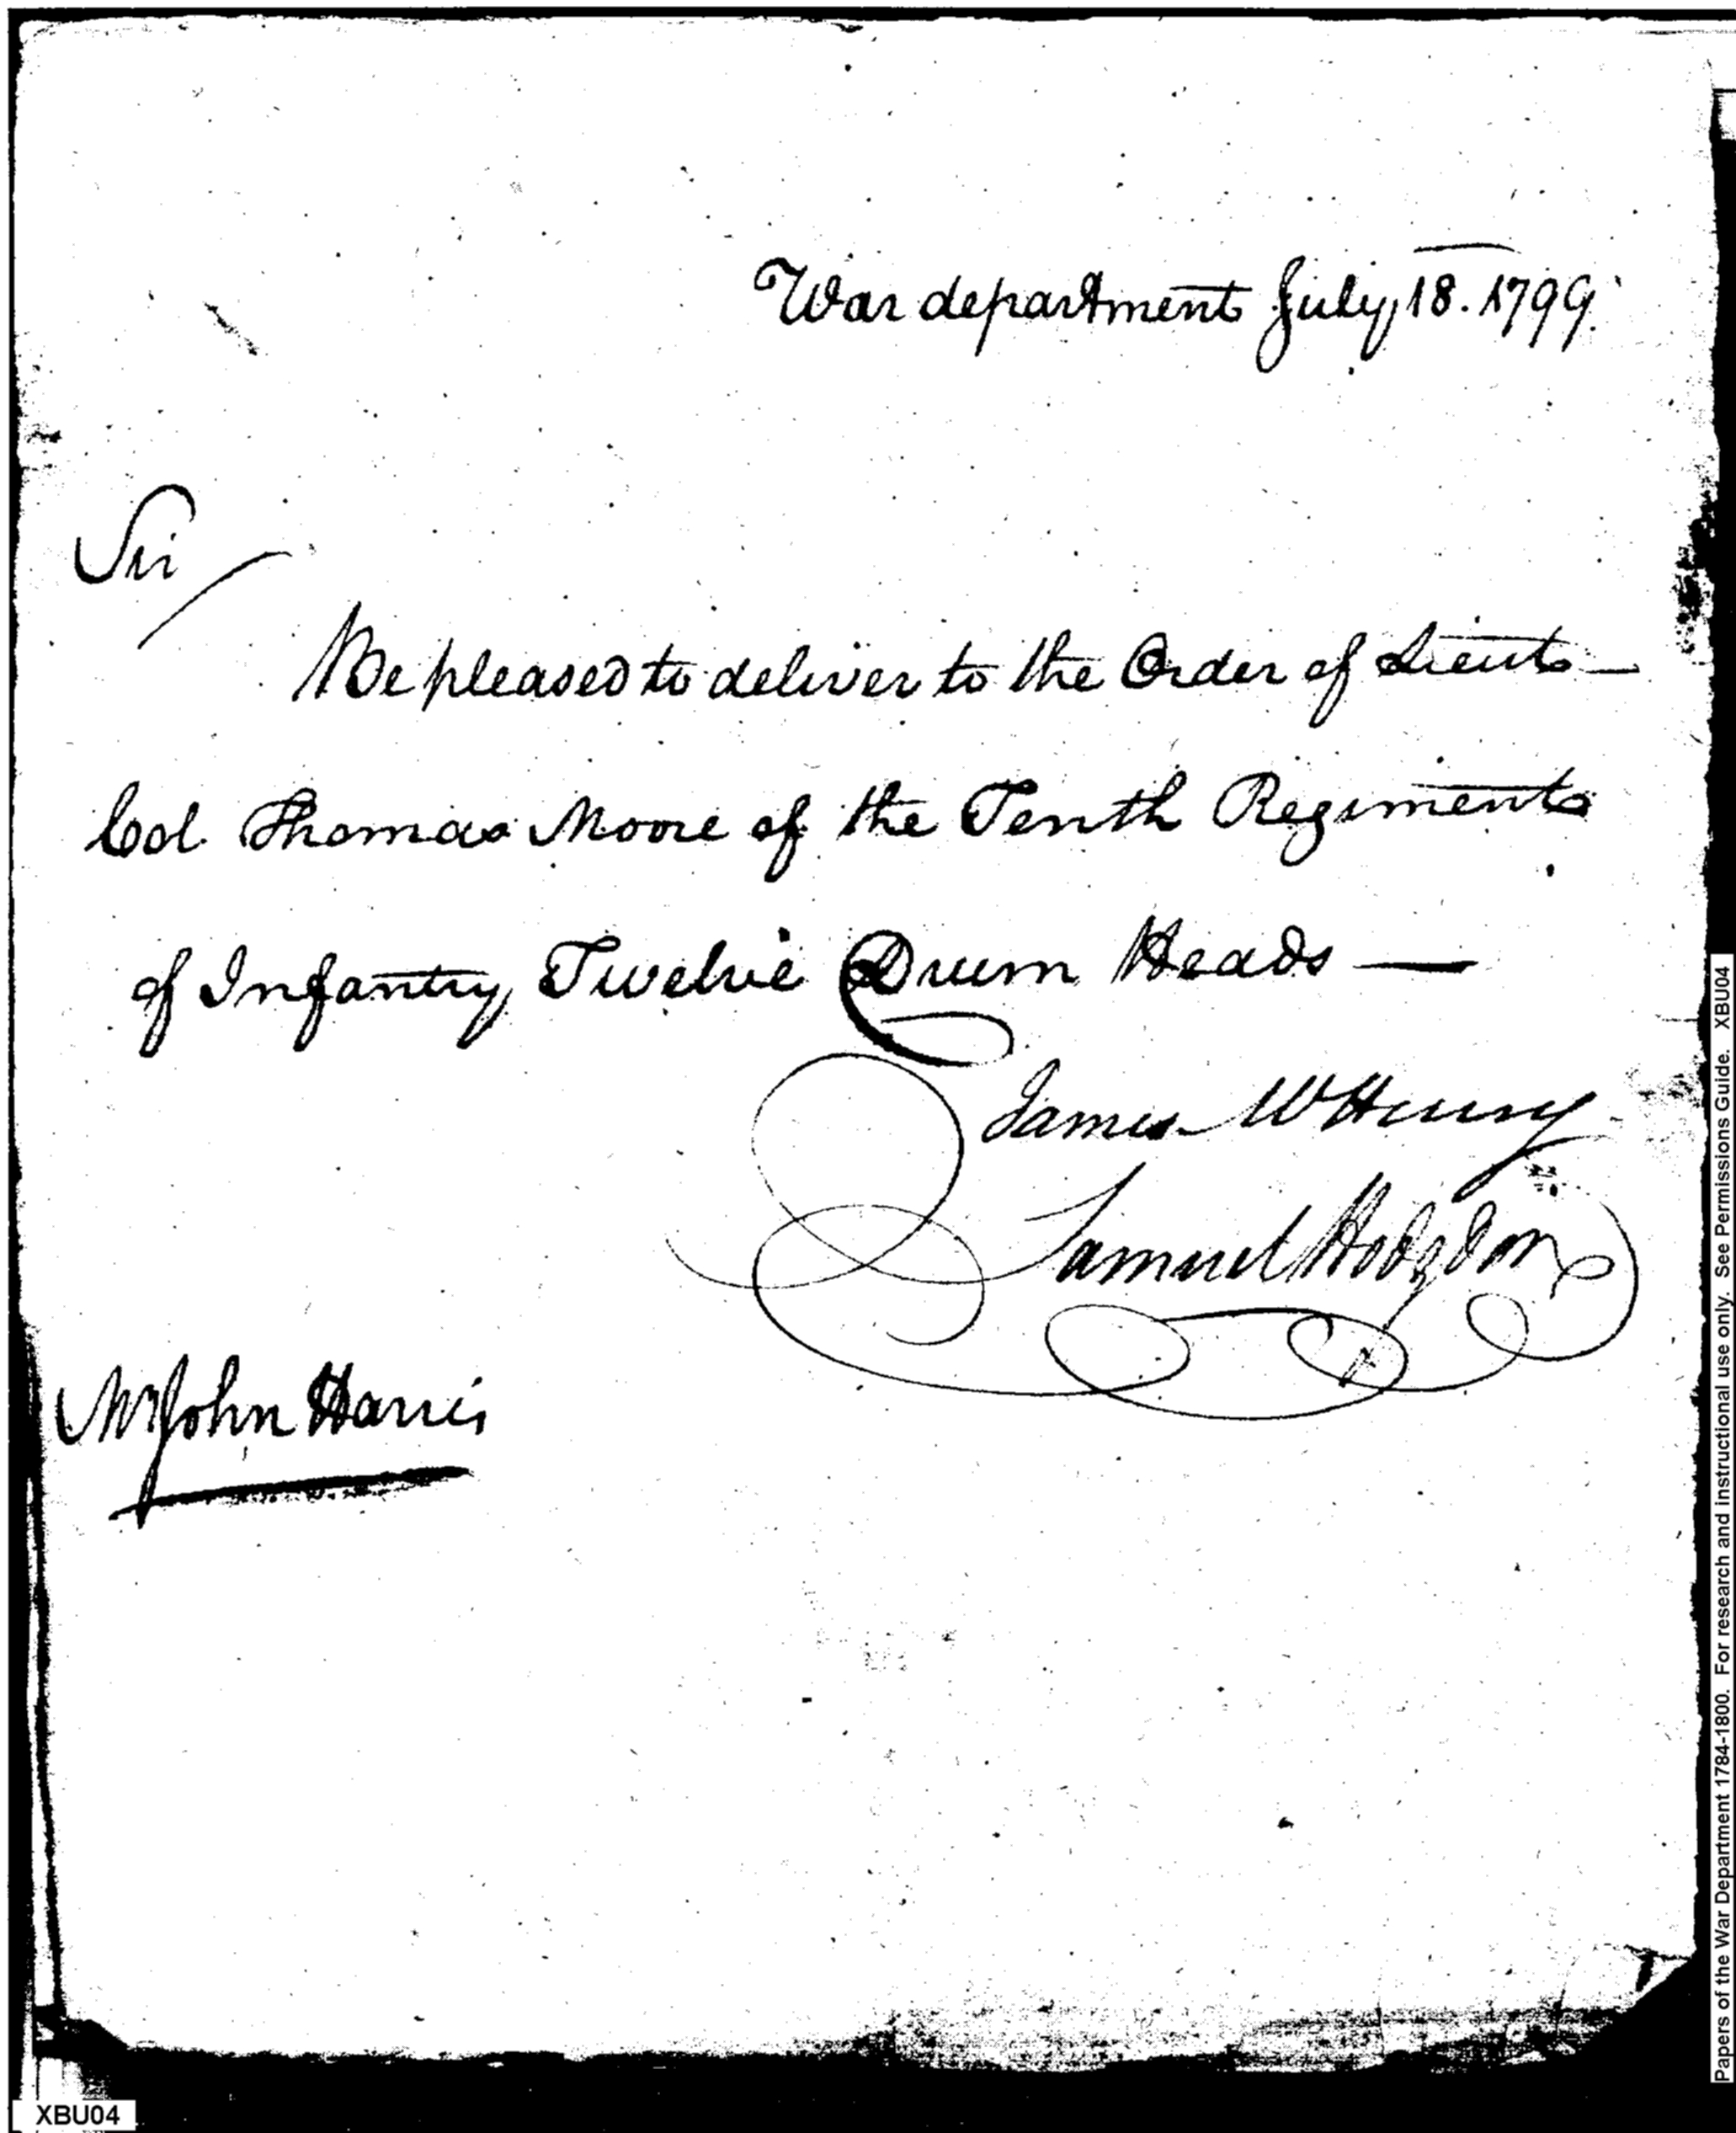 War department July 18. 1799.
Sir
Be pleased to deliver to the Order of Lieut
Col. Thomas Moore of the Tenth Regiment
of Infantry, Twelve Drum Heads —
James McHenry
Samuel Hodgdon
Mr John Harris
XBU04
Papers of the War Department 1784-1800. For research and instructional use only. See Permissions Guide. XBU04